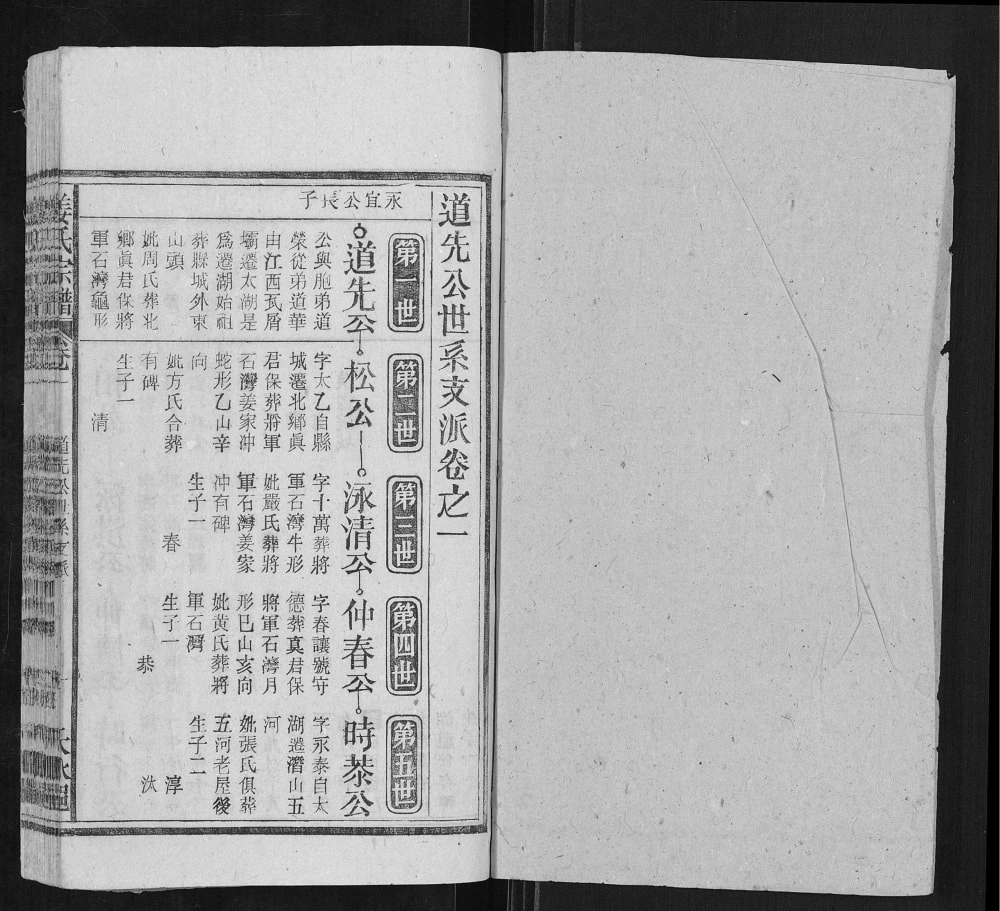 道先公世系支派卷之一
第一世
第二世
第三世
第四世
第五世
永宜公長子
道先公
松公
泳清公
仲春公
時恭公
公與胞弟道
榮從弟道華
由江西瓦屑
壩遷太湖是
為遷湖始祖
葬縣城外東
山頭
妣周氏葬北
鄉眞君保將
軍石灣龜形
字太乙自縣
城遷北鄉眞
君保葬將軍
石灣姜家冲
蛇形乙山辛
向
妣方氏合葬
有碑
生子一
清
字十萬葬將
軍石灣牛形
妣嚴氏葬將
軍石灣姜家
冲有碑
生子一
春
字春讓號守
德葬真君保
將軍石灣月
形巳山亥向
妣黃氏葬將
軍石灣
生子一
恭
字永泰自太
湖遷潛山五
河
妣張氏俱葬
五河老屋後
生子二
淳
汰
姜氏宗譜
道先公世系支派